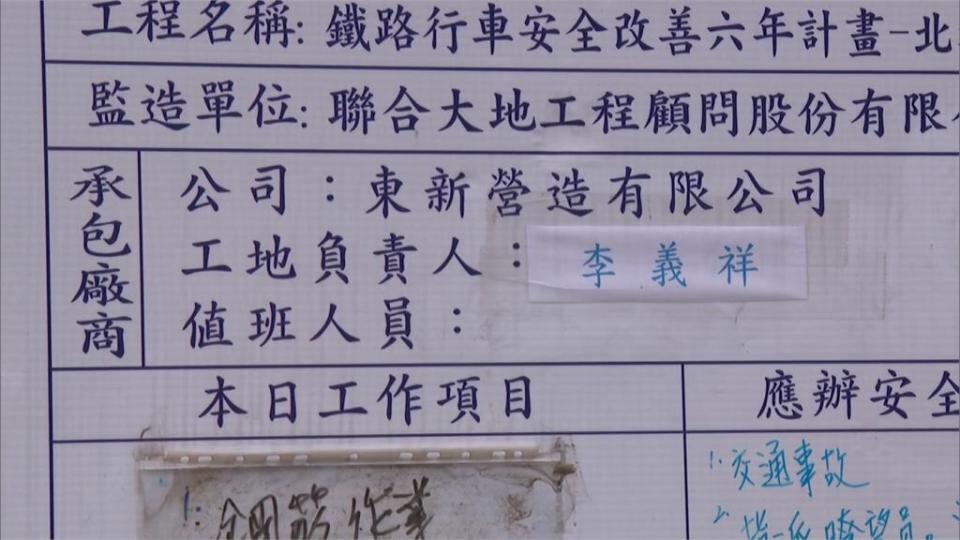 工程名稱: 鐵路行車安全改善六年計畫-北
監造單位: 聯合大地工程顧問股份有限
承包廠商
公司：東新營造有限公司
工地負責人：李義祥
值班人員：
本日工作項目
應辦安全
1. 交通事故
1. 作業
2. 瞭望員。